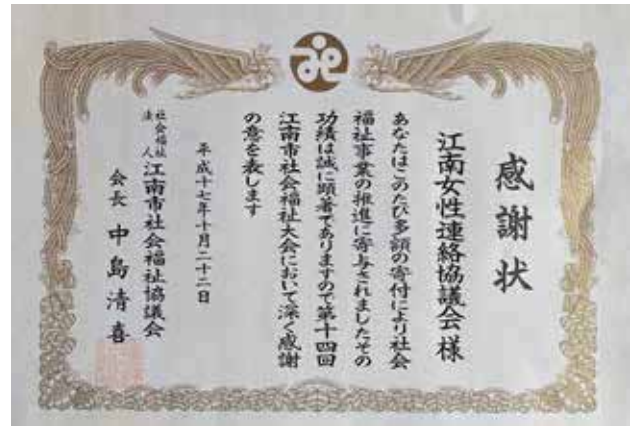 感謝状
江南女性連絡協議会様
あなたはこのたび多額の寄付により社会
福祉事業の推進に寄与されましたその
功績は誠に顕著でありますので第十四回
江南市社会福祉大会において深く感謝
の意を表します
平成十七年十月二十二日
社会福祉法人 江南市社会福祉協議会
会長 中島清喜